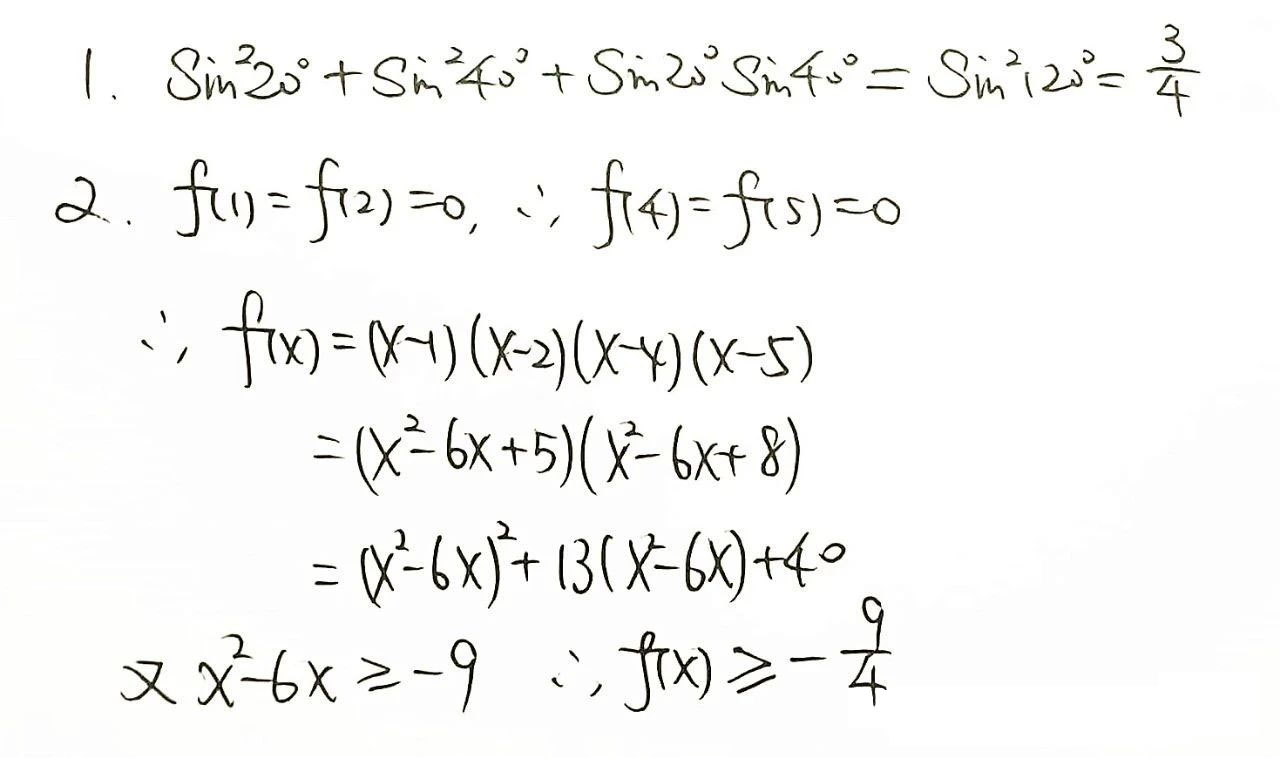 1. Sin²20° + Sin²40° + Sin20° Sin40° = Sin²120° = 3/4
2. f(1) = f(2) = 0, ∴ f(4) = f(5) = 0
∴ f(x) = (x-1)(x-2)(x-4)(x-5)
= (x²-6x+5)(x²-6x+8)
= (x²-6x)²+13(x²-6x)+40
又 x²-6x ≥ -9 ∴ f(x) ≥ -9/4